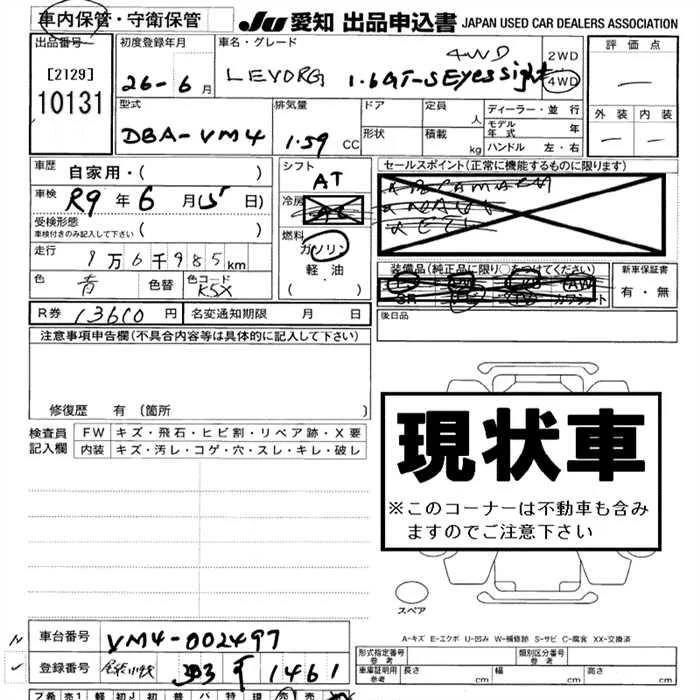 車内保管・守衛保管
JU 愛知 出品申込書 JAPAN USED CAR DEALERS ASSOCIATION
出品番号
[2129]
10131
初度登録年月
26-6月
車名・グレード
LEVORG 1.6GT-S Eyessight
4WD
2WD
4WD
評価点
—
外装 内装
— —
型式
DBA-VM4
排気量
1.59 CC
ドア
形状
定員 人
積載 kg
ディーラー・並行
モデル年式 年
ハンドル 左・右
車歴
自家用・( )
車検
R9年6月(5日)
受検形態
車検付きのみ記入して下さい ( )
走行
9万6千985km
色
青
色替
色コード
K5X
シフト
AT
冷房
AC
燃料
ガソリン
軽油
(・)
セールスポイント(正常に機能するものに限ります)
装備品(純正品に限り○をつけてください)
SR
AW
カワシート
新車保証書
有・無
R券 13600円
名変通知期限 月 日
後日品
注意事項申告欄(不具合内容等は具体的に記入して下さい)
修復歴 有(箇所 )
検査員
記入欄
FW キズ・飛石・ヒビ割・リペア跡・X要
内装 キズ・汚レ・コゲ・穴・スレ・キレ・破レ
現状車
※このコーナーは不動車も含み
ますのでご注意下さい
スペア
A-キズ E-エクボ U-凹み W-補修跡 S-サビ C-腐食 XX-交換済
車台番号
VM4-002497
登録番号
1461
形式指定番号
参考
類別区分番号
参考
車庫証明用
参考
長さ cm 幅 cm 高さ cm